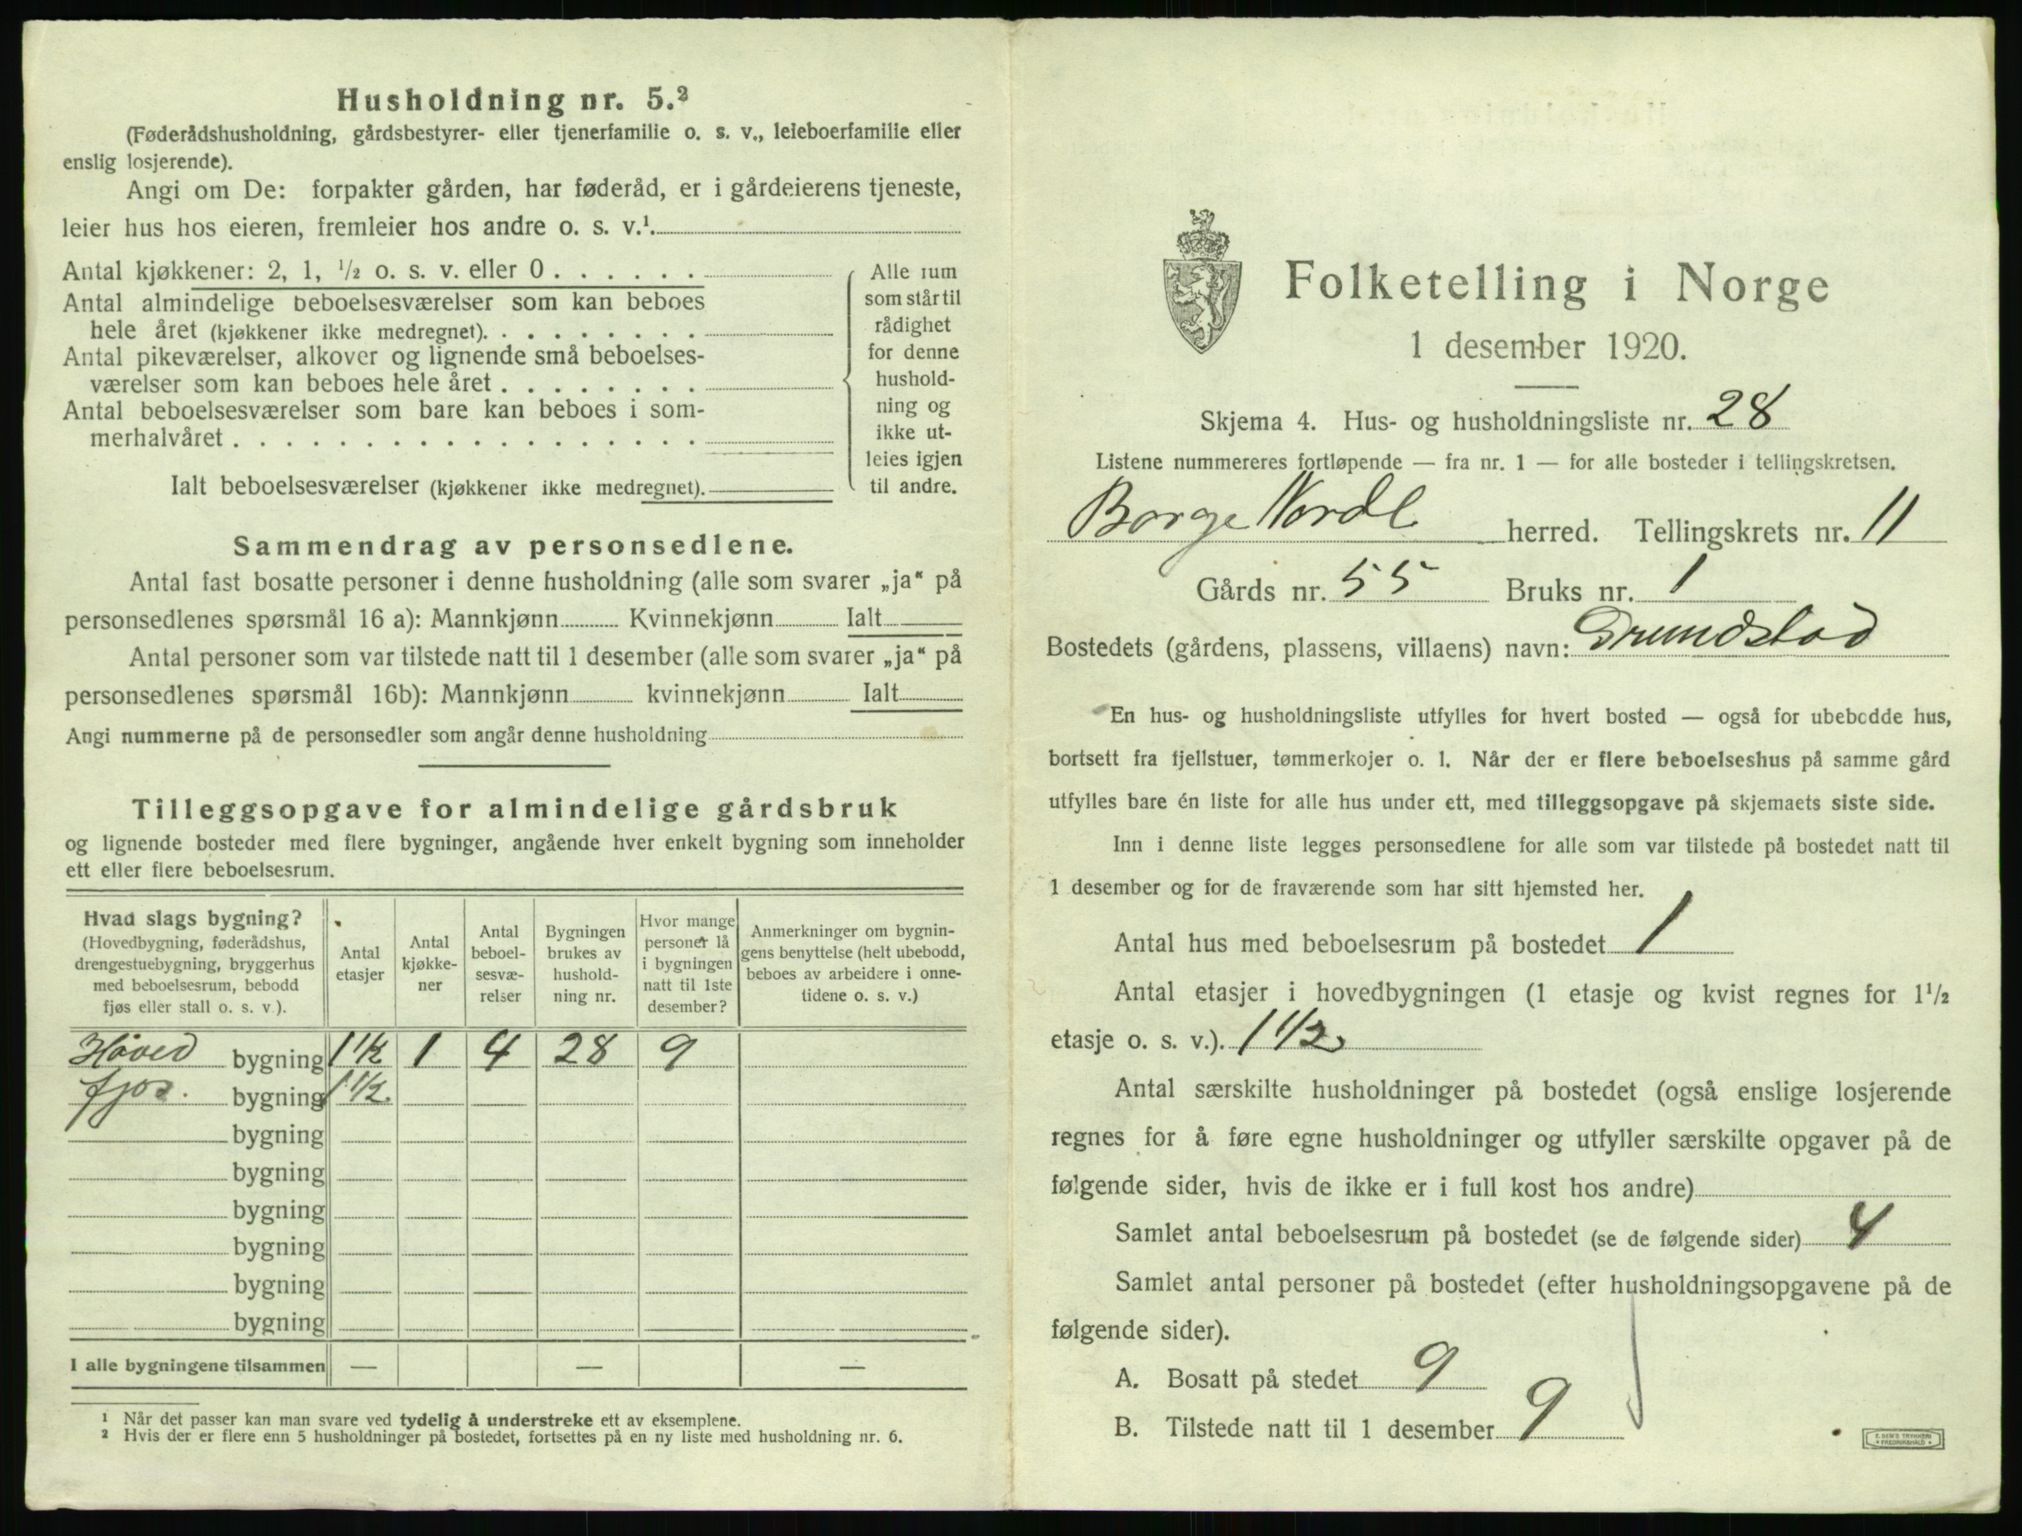 Husholdning nr. 5.²
(Føderådshusholdning, gårdsbestyrer- eller tjenerfamilie o. s. v., leieboerfamilie eller
enslig losjerende).
Angi om De: forpakter gården, har føderåd, er i gårdeierens tjeneste,
leier hus hos eieren, fremleier hos andre o. s. v.¹
Antal kjøkkener: 2, 1, ½ o. s. v. eller 0 . . . . . .
Antal almindelige beboelsesværelser som kan beboes
hele året (kjøkkener ikke medregnet). . . . . . . . .
Antal pikeværelser, alkover og lignende små beboelses-
værelser som kan beboes hele året . . . . . . . .
Antal beboelsesværelser som bare kan beboes i som-
merhalvåret . . . . . . . . . . . . . . . . . .
Ialt beboelsesværelser (kjøkkener ikke medregnet).
Alle rum
som står til
rådighet
for denne
hushold-
ning og
ikke ut-
leies igjen
til andre.
Sammendrag av personsedlene.
Antal fast bosatte personer i denne husholdning (alle som svarer „ja“ på
personsedlenes spørsmål 16 a): Mannkjønn Kvinnekjønn Ialt
Antal personer som var tilstede natt til 1 desember (alle som svarer „ja“ på
personsedlenes spørsmål 16b): Mannkjønn kvinnekjønn Ialt
Angi nummerne på de personsedler som angår denne husholdning
Tilleggsopgave for almindelige gårdsbruk
og lignende bosteder med flere bygninger, angående hver enkelt bygning som inneholder
ett eller flere beboelsesrum.
Hvad slags bygning?
(Hovedbygning, føderådshus,
drengestuebygning, bryggerhus
med beboelsesrum, bebodd
fjøs eller stall o. s. v.).
Antal
etasjer
Antal
kjøkke-
ner
Antal
beboel-
sesvæ-
relser
Bygningen
brukes av
hushold-
ning nr.
Hvor mange
personer lå
i bygningen
natt til 1ste
desember?
Anmerkninger om bygnin-
gens benyttelse (helt ubebodd,
beboes av arbeidere i onne-
tidene o. s. v.)
Hoved bygning 1 1/2 1 4 28 9
fjøs. bygning 1 1/2.
bygning
bygning
bygning
bygning
bygning
bygning
I alle bygningene tilsammen — — —
¹ Når det passer kan man svare ved tydelig å understreke ett av eksemplene.
² Hvis der er flere enn 5 husholdninger på bostedet, fortsettes på en ny liste med husholdning nr. 6.
Folketelling i Norge
1 desember 1920.
Skjema 4. Hus- og husholdningsliste nr. 28
Listene nummereres fortløpende — fra nr. 1 — for alle bosteder i tellingskretsen.
Borge Nordl herred. Tellingskrets nr. 11
Gårds nr. 55 Bruks nr. 1
Bostedets (gårdens, plassens, villaens) navn: Grundstad
En hus- og husholdningsliste utfylles for hvert bosted — også for ubebodde hus,
bortsett fra fjellstuer, tømmerkojer o. l. Når der er flere beboelseshus på samme gård
utfylles bare én liste for alle hus under ett, med tilleggsopgave på skjemaets siste side.
Inn i denne liste legges personsedlene for alle som var tilstede på bostedet natt til
1 desember og for de fraværende som har sitt hjemsted her.
Antal hus med beboelsesrum på bostedet 1
Antal etasjer i hovedbygningen (1 etasje og kvist regnes for 1½
etasje o. s. v.). 1 1/2
Antal særskilte husholdninger på bostedet (også enslige losjerende
regnes for å føre egne husholdninger og utfyller særskilte opgaver på de
følgende sider, hvis de ikke er i full kost hos andre)
Samlet antal beboelsesrum på bostedet (se de følgende sider) 4
Samlet antal personer på bostedet (efter husholdningsopgavene på de
følgende sider).
A. Bosatt på stedet 9
B. Tilstede natt til 1 desember 9